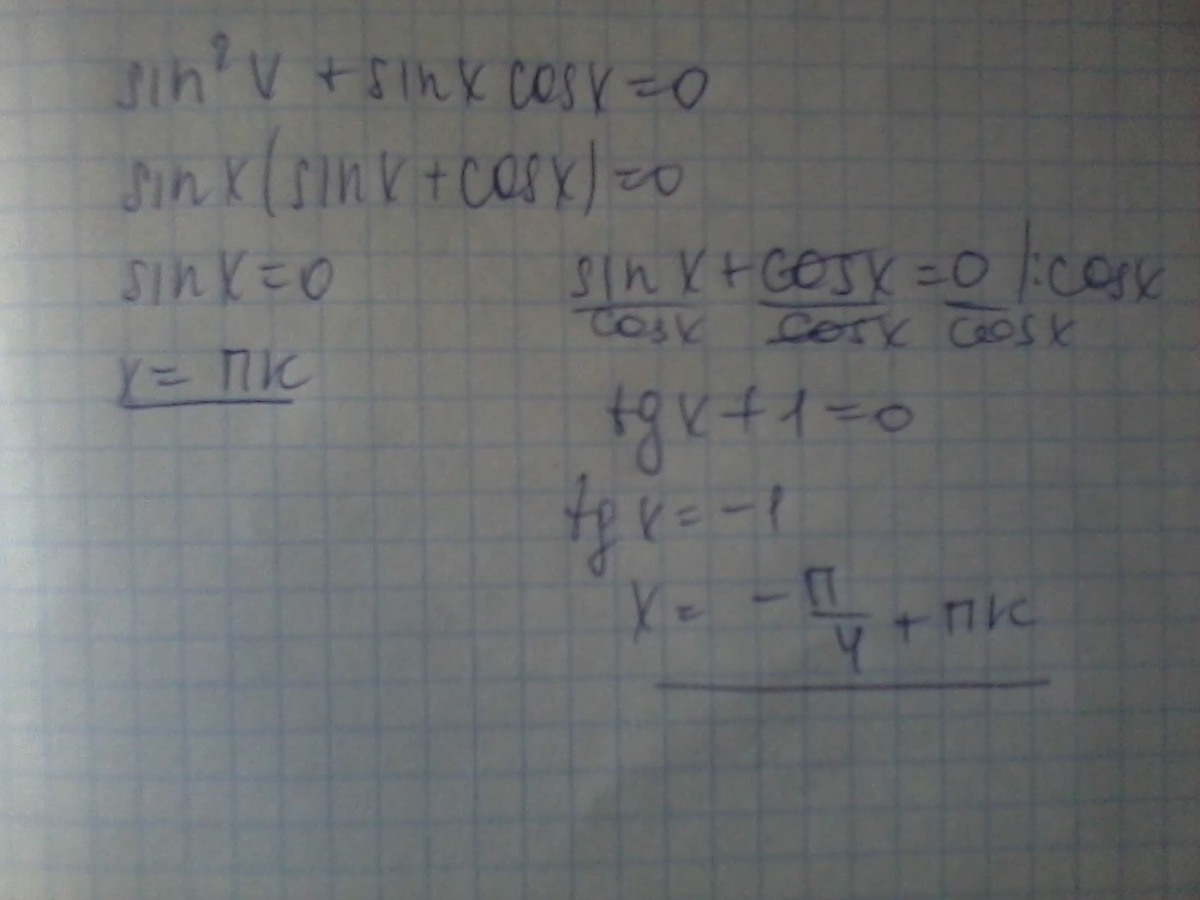 sin²x + sinx cosx = 0
sinx(sinx + cosx) = 0
sinx = 0
x = πк
sinx/cosx + cosx/cosx = 0/cosx |:cosx
tgx + 1 = 0
tgx = -1
x = -π/4 + πк